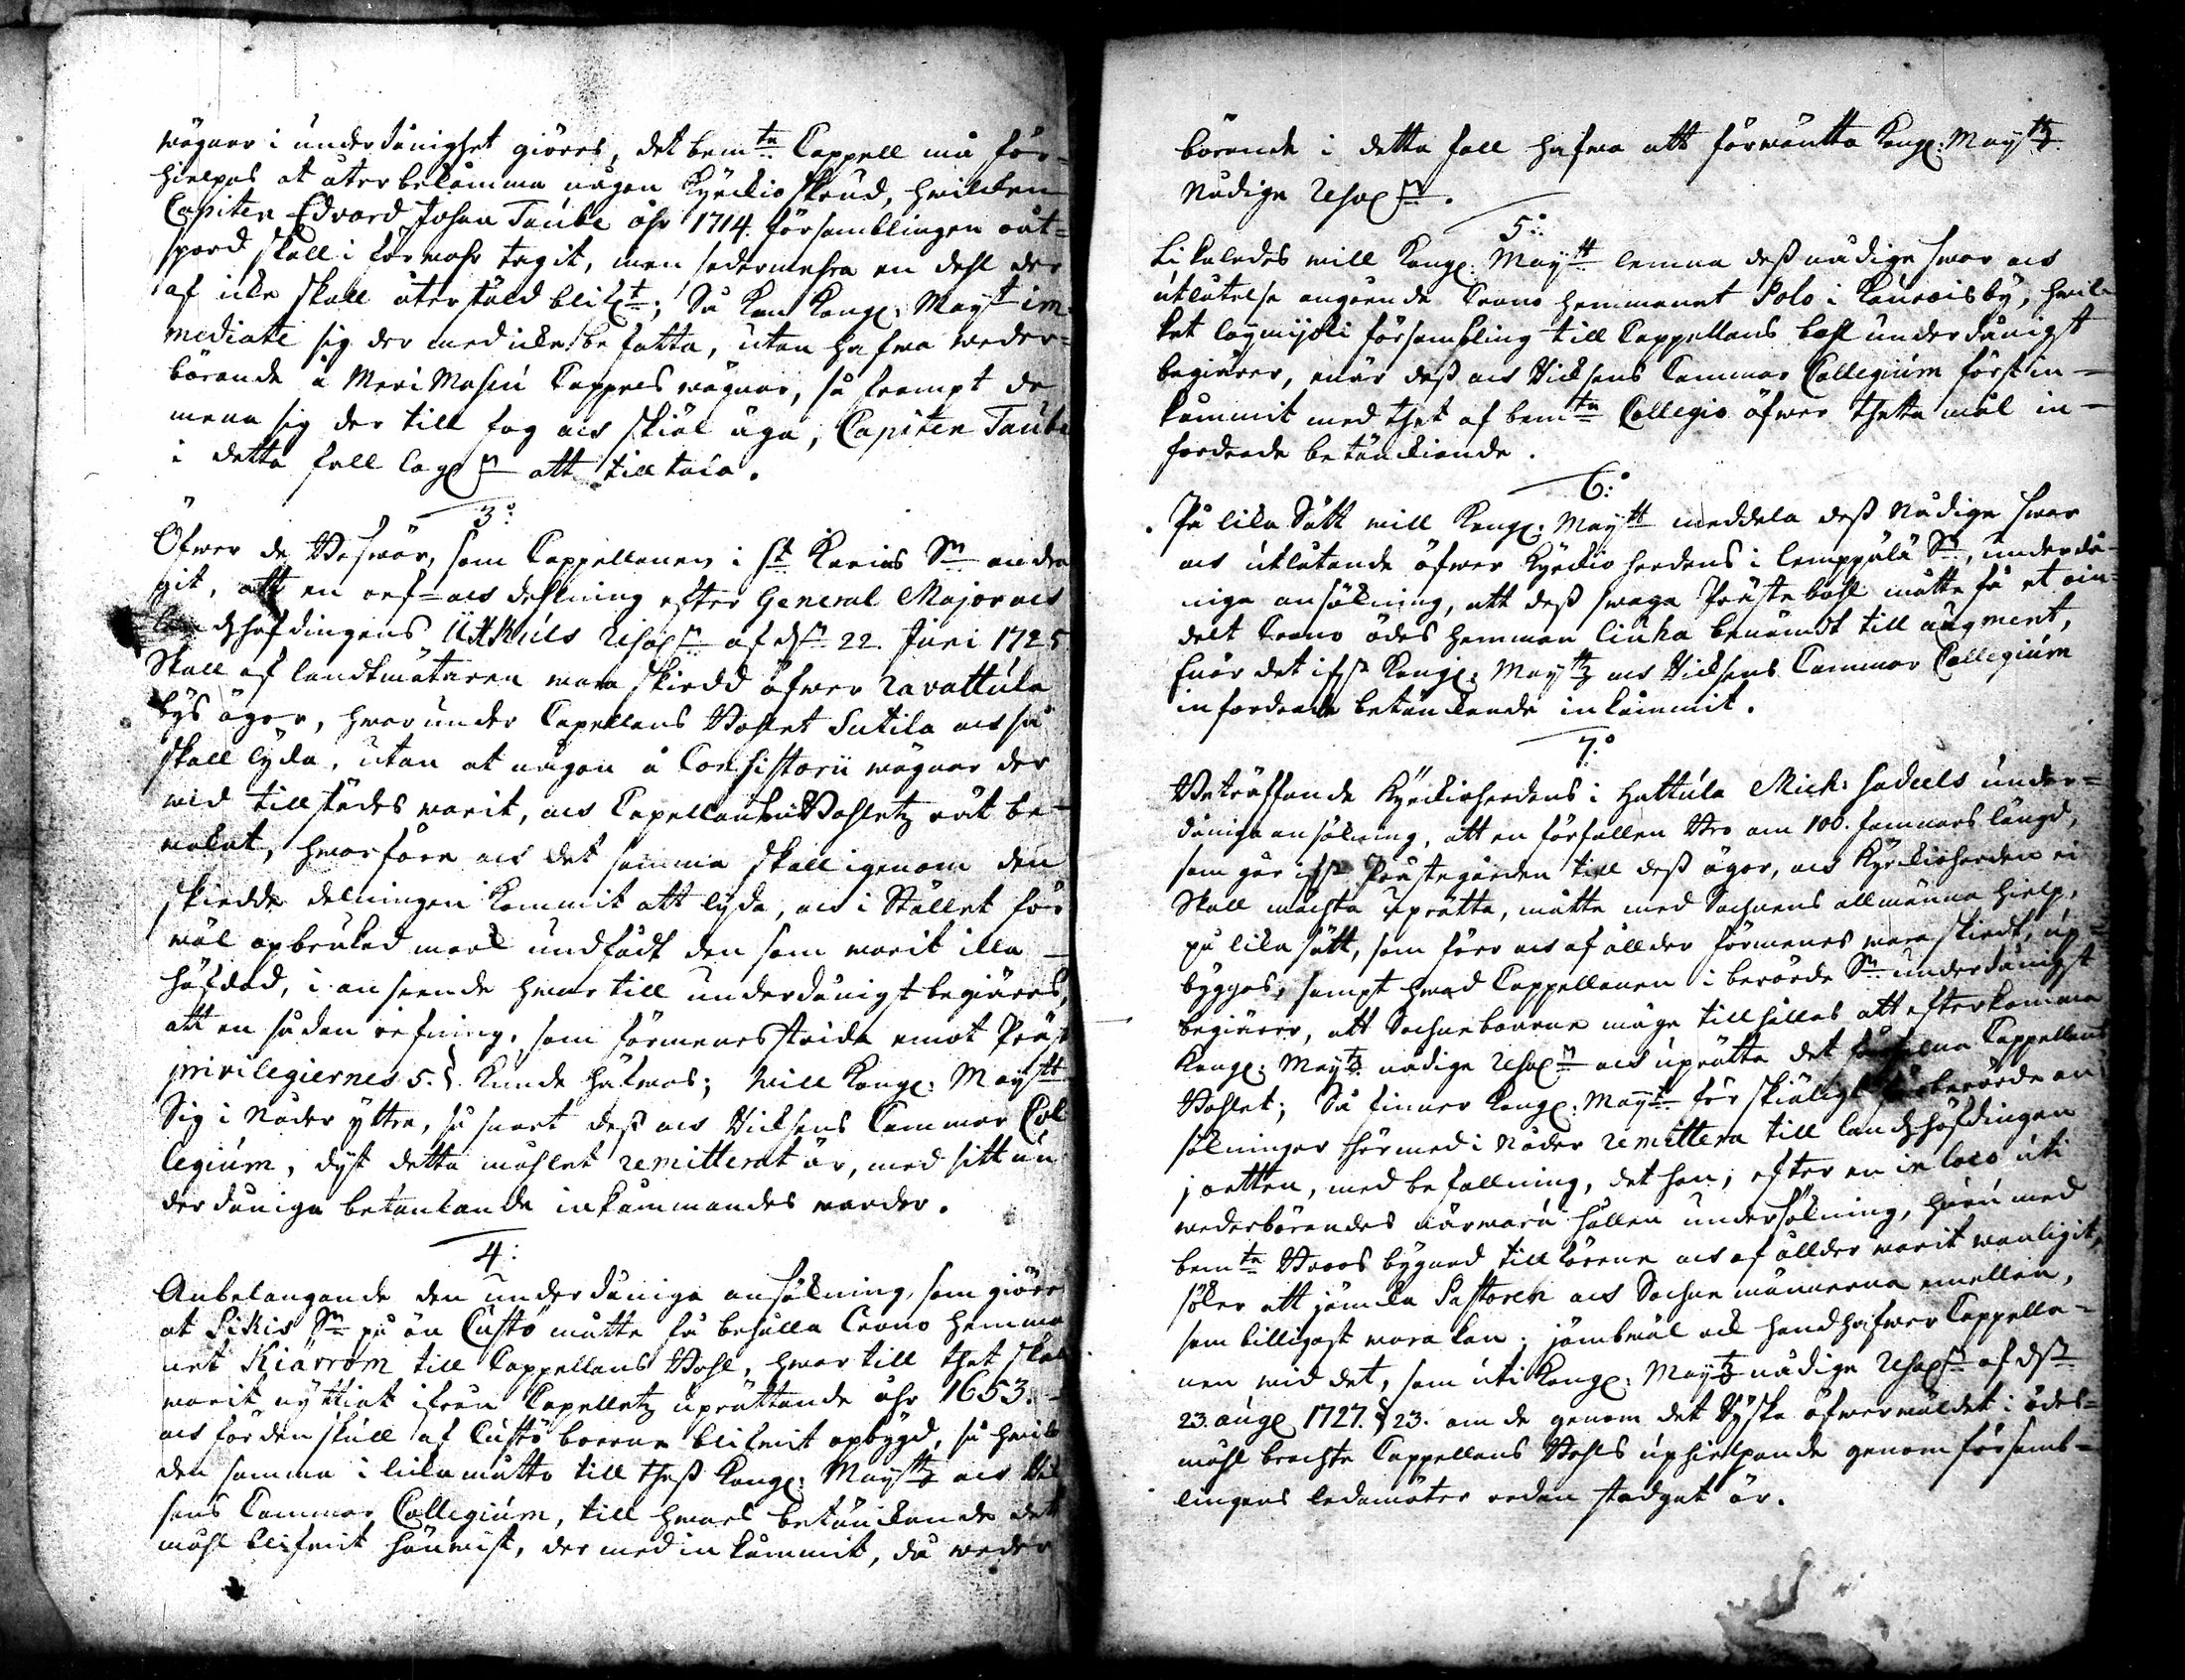 wägnar i underdånighet giöres, det bem:te Cappell må för-
hielpas at återbekomma någon Kyrckioskrud, hvilken
Capiten Edvard Johan Taube åhr 1714. församblingen oåt-
spord skall i förvahr tagit, men sedermehra en dehl der
af icke skall återstäld blifit; Så kan Kongl: Mayst im-
mediate sig der med icke befatta, utan hafwa weder-
börande å Meri Masku Cappels wägnar, så frampt de
mena sig der till fog och skiäl äga, Capiten Taube
i detta fall lagl:n att till tala.
3:o
Öfwer de Beswär, som Cappellanen i St Karins S:n andra
git, att en ref- och dehlning efter General Major och
Landzhöfdingens Üxkuls Resol:n af d:n 22. Juni 1725
Skall af landtmätaren wara skiedd öfwer Ravattula
bys ägor, hwar under Capellans Bohlet Sutila och så
skall lyda, utan at någon å Consistorii wägnar der
wid tillstädes warit, och Capellans Bohletz rät be-
wakat, hwarföre och det samma skall igenom den
skiedde delningen kommit att lyda, och i Stället för
wäl opbrukad mark undfådt den som warit illa
häfdad, i anseende hwar till underdånigst begiäres,
att en sådan refning, som förmenes strida emot Präst
privilegiernes 5. §. kunde häfwas; will Kongl: Maystt
Sig i Nåder yttra, så snart dess och Ricksens Cammar Col
legium, dyst detta mahlet remitterat är, med sitt un
derdåniga betänkande inkommandes warder.
4:
Anbelangande den underdåniga ansökning, som giöres
at Pikis S:n på ön Custö måtte få behålla Crono hemma
net Kiärrom till Cappellans Bohl, hwar till thet skal
warit nyttiat ifrån Capelletz uprättande åhr 1653.
och för den skull af Custö boerne blifwit opbygd, så hwilar
den samma i lika måtto till thess Kongl: Maysttz och Rik
sens Cammar Collegium, till hwars betänckande dett
mähl blifwit hänwist, der med in kommit, då weder
börande i detta fall hafwa att förwäntta Kongl: Maysttz
Nådige Resol:n.
5:o
Likaledes will Kongl: Maystt lemna dess nådige swar och
utlåtelse angående Crono hemmanet Polo i Kaurois by, hwil-
ket Loymijoki försambling till Cappellans bohl underdånigst
begiärer, när dess och Ricksens Cammar Collegium först in-
kommit med thet af bem:te Collegio öfwer thetta mål in-
fordrade betänckiande.
6:o
På lika Sätt will Kongl: Maystt meddela dess Nådige swar
och utlåtande öfwer Kyrckioherdens i Lemppälä S:n, underdå-
niga ansökning, att dess swaga Prästebohl måtte få et oin-
delt Crono ödes hemman Cuika benämdt till augment,
Enär det ifr:n Kongl: Maysttz och Ricksens Cammar Collegium
infordrade betänckande inkommit.
7:o
Beträffande Kyrckioherdens i Hattula Mich: Sadeels under-
dåniga ansökning, att en förfallen Bro om 100. famnars längd,
som går ifr:n Prästegården till dess ägor, och Kyrckioherden ei
Skall mächta uprätta, måtte med Sochnens allmänna hielp,
på lika sätt, som förr och af ållder förmenes wara skiedt, up-
byggas, sampt hwad Cappellanen i berörde S:n underdånigst
begiärer, att Sochneboerne måge tillhållas att efterkomma
Kongl: Maytz nådige Resol:n och uprätta det förfalna Cappellans
Bohlet; Så finner Kongl: Mayt:t för skiäligt förberörde an
sökningar thermed i Nåder remittera till landzhöfdingen
joetten, med befallning, det han, efter en in loco uti
wederbörandes närwaru hållen undersökning, huru med
bem:te Broos bygnad till förene och af ållder warit wanligit,
söker att jämka Pastoren och Sochne männerna emellan,
som billigast wara kan. jämbwäl och handhafwer Cappella-
nen wid det, som uti Kongl: Maytz nådige Resol:n af d:n
23. aug: 1727. § 23. om de genom det Ryska öfwerwäldet i ödes-
mähl brachte Cappellans Bohls uphielpande genom församb-
lingens ledamöter redan stadgat är.